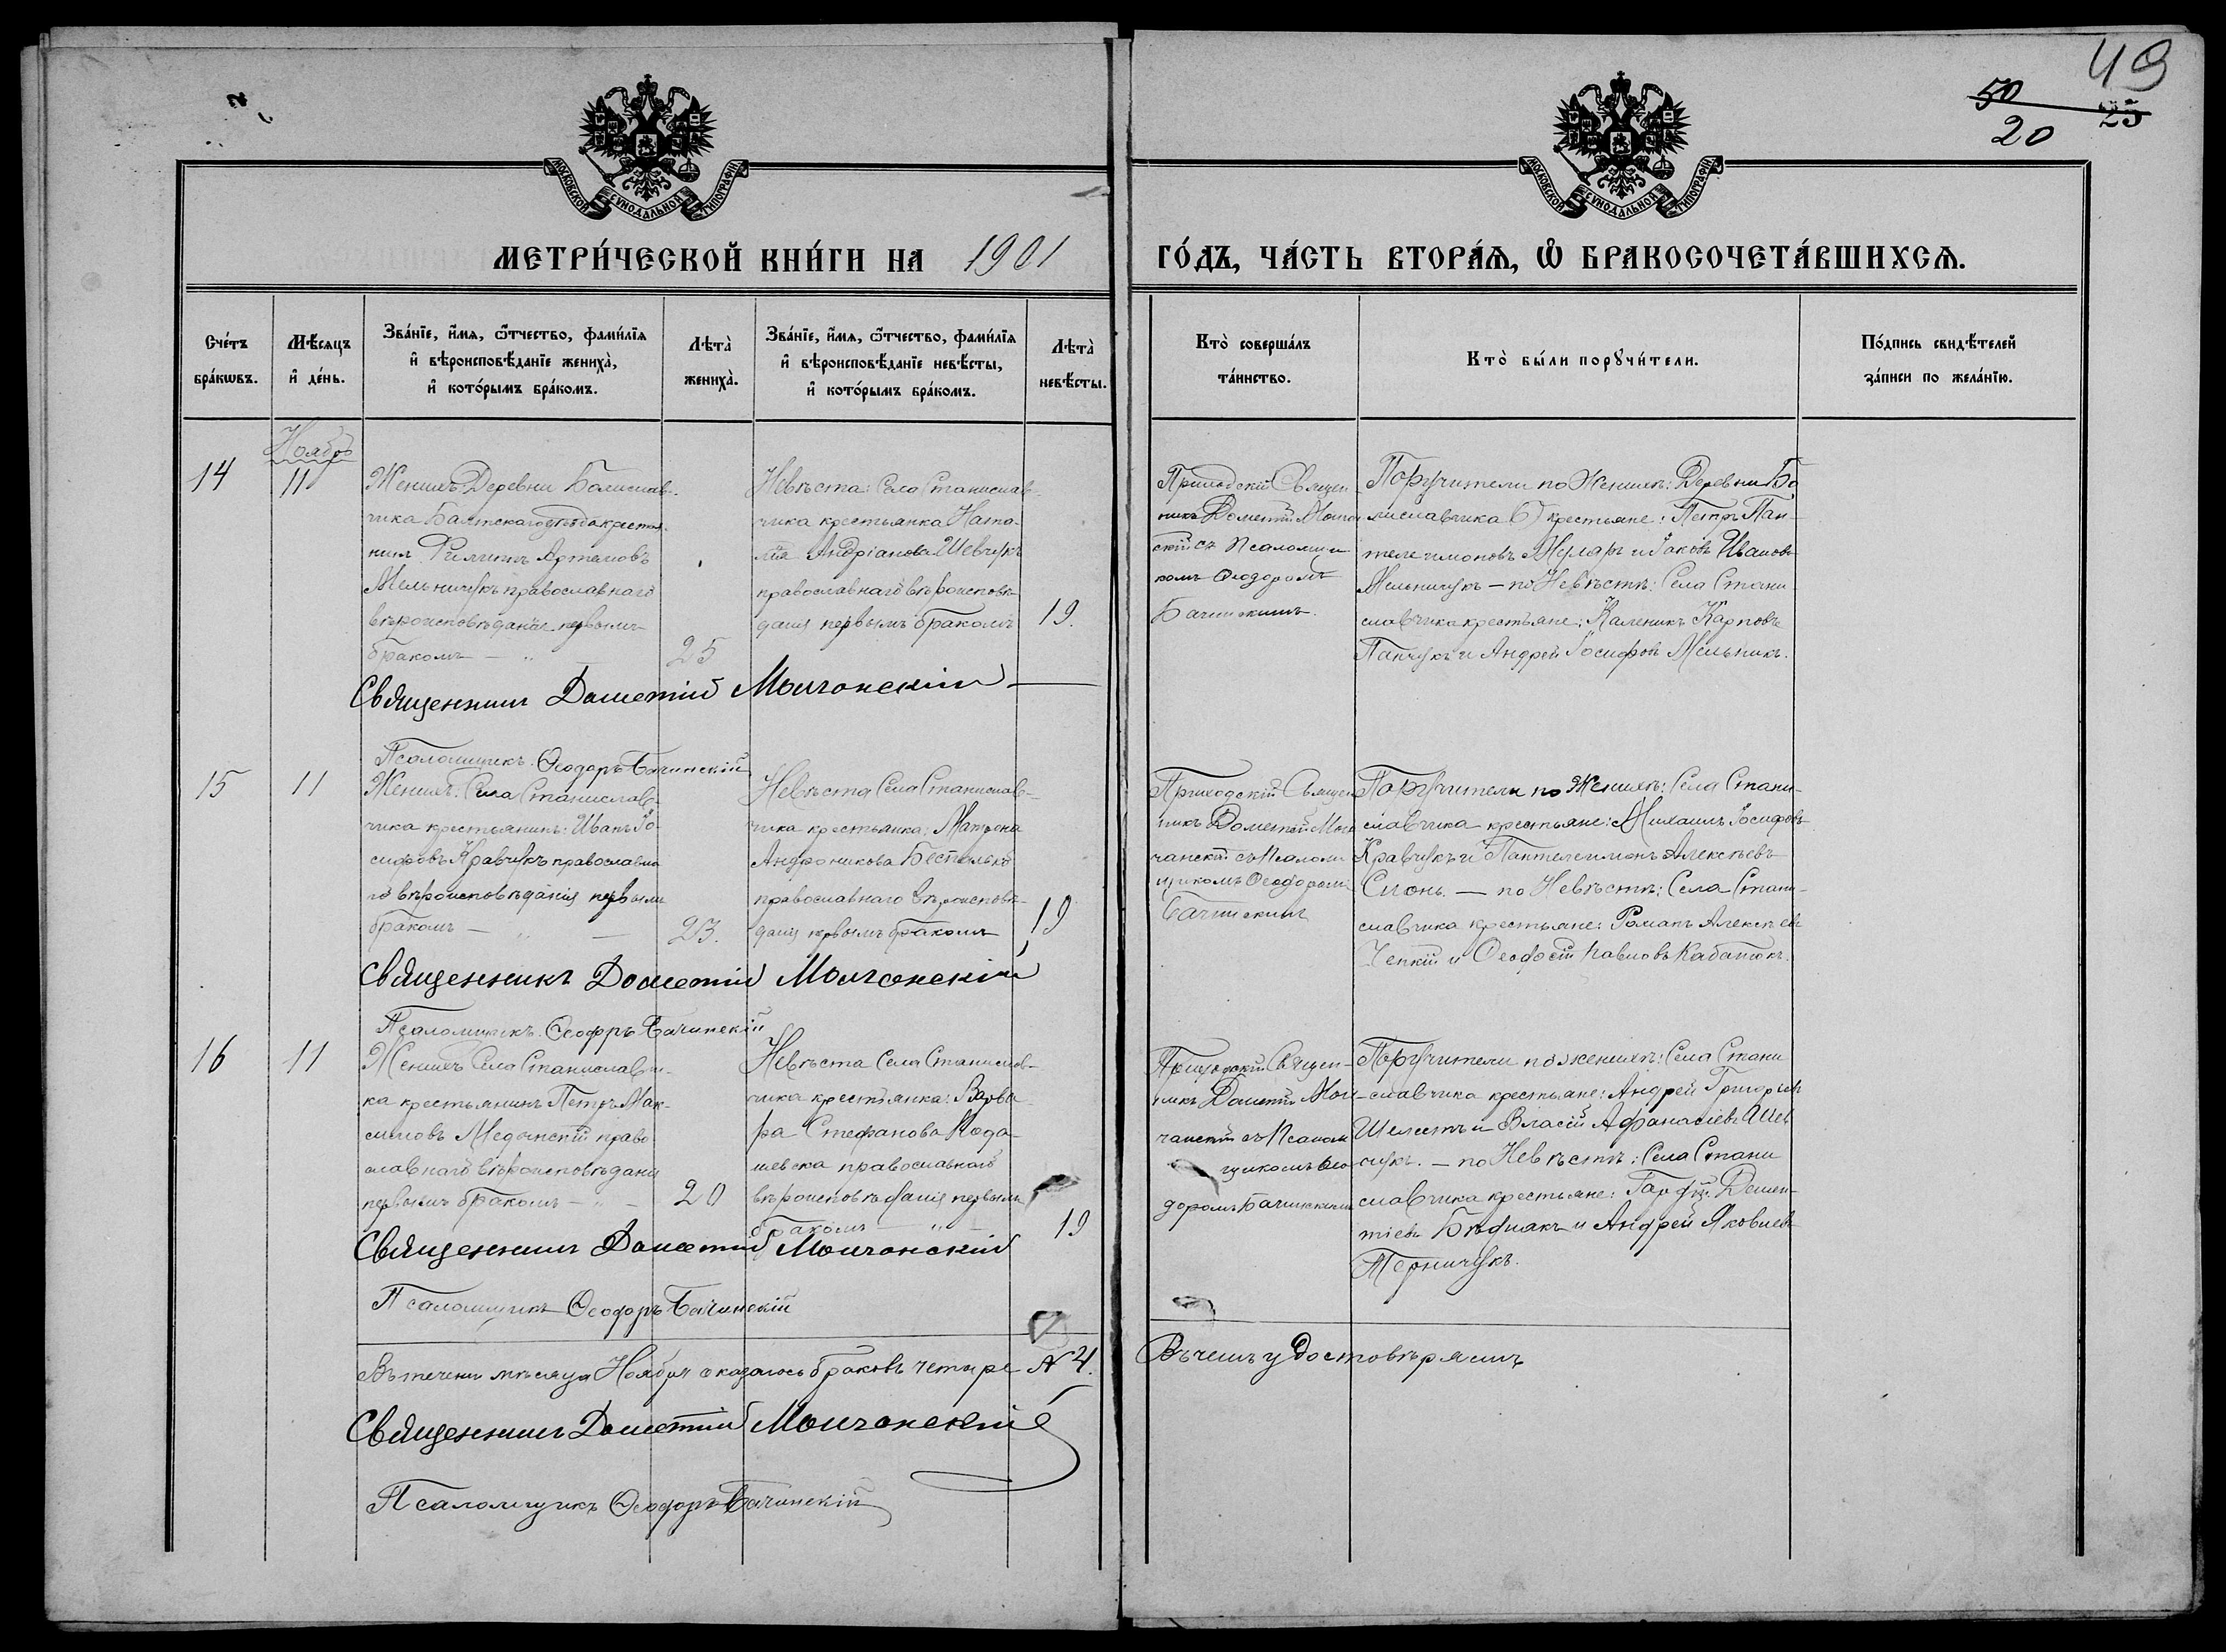 49
50
25
20
МОСКОВСКОЙ СѴНОДАЛЬНОЙ ТИПОГРАФІИ
МОСКОВСКОЙ СѴНОДАЛЬНОЙ ТИПОГРАФІИ
МЕТРИ́ЧЕСКОЙ КНИ́ГИ НА 1901 ГО́ДЪ, ЧА́СТЬ ВТОРА́Ѧ, Ѡ҆ БРАКОСОЧЕТА́ВШИХСѦ.
Сче́тъ
бра́кѡвъ.
Мѣ́сяцъ
и҆ де́нь.
Зва́нїе, и҆́мѧ, ѻ҆́тчество, фами́лїѧ
и҆ вѣроисповѣ́данїе жениха̀,
и҆ кото́рымъ бра́комъ.
Лѣта̀
жениха̀.
Зва́нїе, и҆́мѧ, ѻ҆́тчество, фами́лїѧ
и҆ вѣроисповѣ́данїе невѣ́сты,
и҆ кото́рымъ бра́комъ.
Лѣта̀
невѣ́сты.
Кто̀ соверша́лъ
та́инство.
Кто̀ бы́ли порꙋчи́тели.
По́дпись свидѣ́телей
за́писи по жела́нїю.
Ноябрь
14
11
Женихъ: Деревни Болислав-
чика Балтскаго уѣзда крестья-
нинъ Филиппъ Артамовъ
Мельничукъ православнаго
вѣроисповѣданія первымъ
бракомъ — „ —
25
Невѣста: Села Станислав-
чика крестьянка Ната-
лія Андріанова Шевчукъ
православнаго вѣроисповѣ-
данія первымъ бракомъ
19.
Приходскій Священ-
никъ Дометій Молчан
скій съ Псаломщи
комъ Ѳеодоромъ
Бачинскимъ.
Поручители по Женихѣ: Деревни Бо
лиславчика крестьяне: Петръ Пан-
телеимоновъ Муляръ и Іаковъ Ивановъ
Мельничукъ — по Невѣстѣ: Села Стани
славчика крестьяне: Каленикъ Карповъ
Панчукъ и Андрей Іосифовъ Мельникъ.
Священникъ Дометій Молчанскій
Псаломщикъ Ѳеодоръ Бачинскій
15
11
Женихъ: Села Станислав-
чика крестьянинъ: Иванъ Іо-
сифовъ Кравчукъ православна
го вѣроисповѣданія первымъ
бракомъ — „ —
23.
Невѣста Села Станислав-
чика крестьянка: Матрона
Андроникова
православнаго вѣроисповѣ-
данія первымъ бракомъ
19
Приходскій Священ
никъ Дометій Мол
чанскій съ Псалом
щикомъ Ѳеодоромъ
Бачинскимъ
Поручители по Женихѣ: Села Стани-
славчика крестьяне: Михаилъ Іосифовъ
Кравчукъ и Пантелеимонъ Алексѣевъ
— по Невѣстѣ: Села Стани-
славчика крестьяне: Романъ Алексѣевъ
и Ѳеодосій Павловъ Кабатюкъ.
Священникъ Дометій Молчанскій
Псаломщикъ Ѳеодоръ Бачинскій
16
11
Женихъ Села Станиславчи-
ка крестьянинъ Петръ Мак-
симовъ Медынскій право
славнаго вѣроисповѣданія
первымъ бракомъ — „ —
20
Невѣста Села Станислав-
чика крестьянка: Варва
ра Стефанова
православнаго
вѣроисповѣданія первымъ
бракомъ — „ —
19
Приходскій Священ-
никъ Дометій Мол
чанскій съ Псалом
щикомъ Ѳео
доромъ Бачинскимъ
Поручители по женихѣ: Села Стани
славчика крестьяне: Андрей Григорьевъ
Шелестъ и Власій Афанасіевъ Шев
чукъ. — по Невѣстѣ: Села Стани
славчика крестьяне: Демен-
тіевъ Бѣднякъ и Андрей Яковлевъ
Терничукъ.
Священникъ Дометій Молчанскій
Псаломщикъ Ѳеодоръ Бачинскій
Въ теченіи мѣсяца Ноября оказалось браковъ четыре № 4. Въ чемъ удостовѣряемъ
Священникъ Дометій Молчанскій
Псаломщикъ Ѳеодоръ Бачинскій